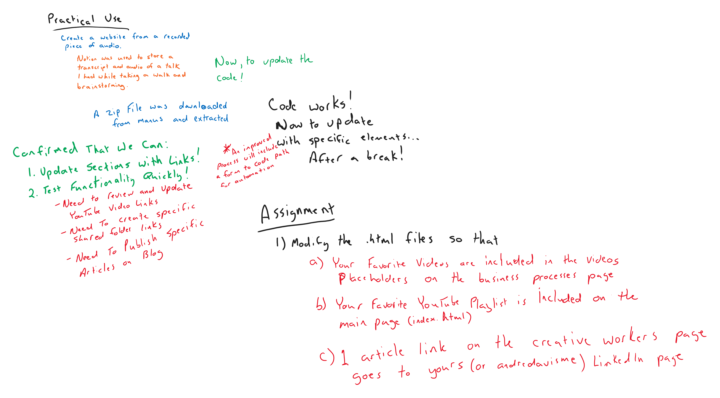 Practical Use
Create a website from a recorded
piece of audio.
Notion was used to store a
transcript and audio of a talk
I had while taking a walk and
brainstorming.
Now, to update the
code!
A Zip File was downloaded
from manus and extracted
Code works!
Now to update
with specific elements...
After a break!
Confirmed That We Can:
1. Update Sections with Links!
2. Test Functionality Quickly!
- Need to review and update
YouTube Video Links
- Need To create specific
shared folder links
- Need To Publish Specific
Articles on Blog
* An improved
process will include
a form to code path
for automation
Assignment
1) Modify the .html files so that
a) Your Favorite Videos are included in the videos
placeholders on the business processes page
b) Your Favorite YouTube Playlist is Included on the
main page (index.html)
c) 1 article link on the creative workers page
goes to yours (or andredavisme) LinkedIn page